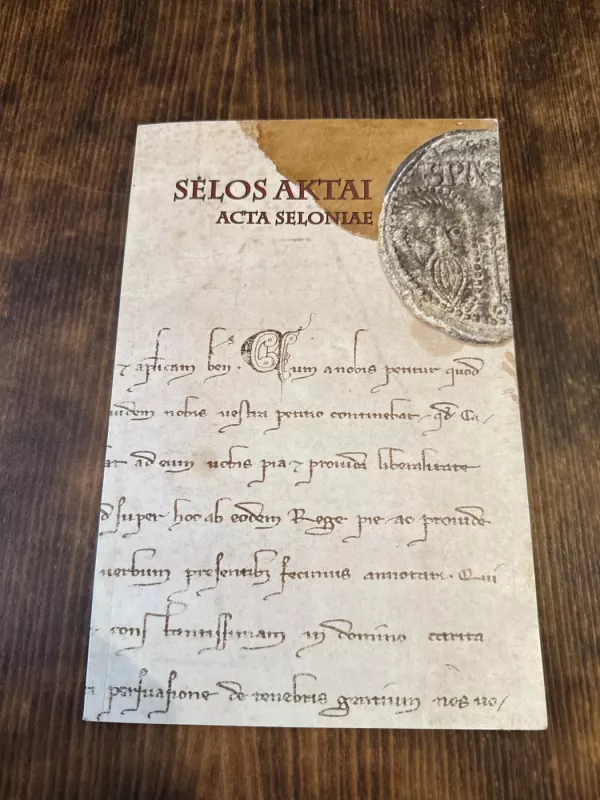 SĖLOS AKTAI
ACTA SELONIAE
SPINS
ben Cum a nobis petitur quod
uidem nobis uestra petitio continebat qd Ca-
ad eum uobis pia ⁊ prouida liberalitate
super hoc ab eodem Rege pie ac prouide
uerbum presentibz fecimus annotari. Qui
in domino carita
persuasione de tenebris gentium nos uo-